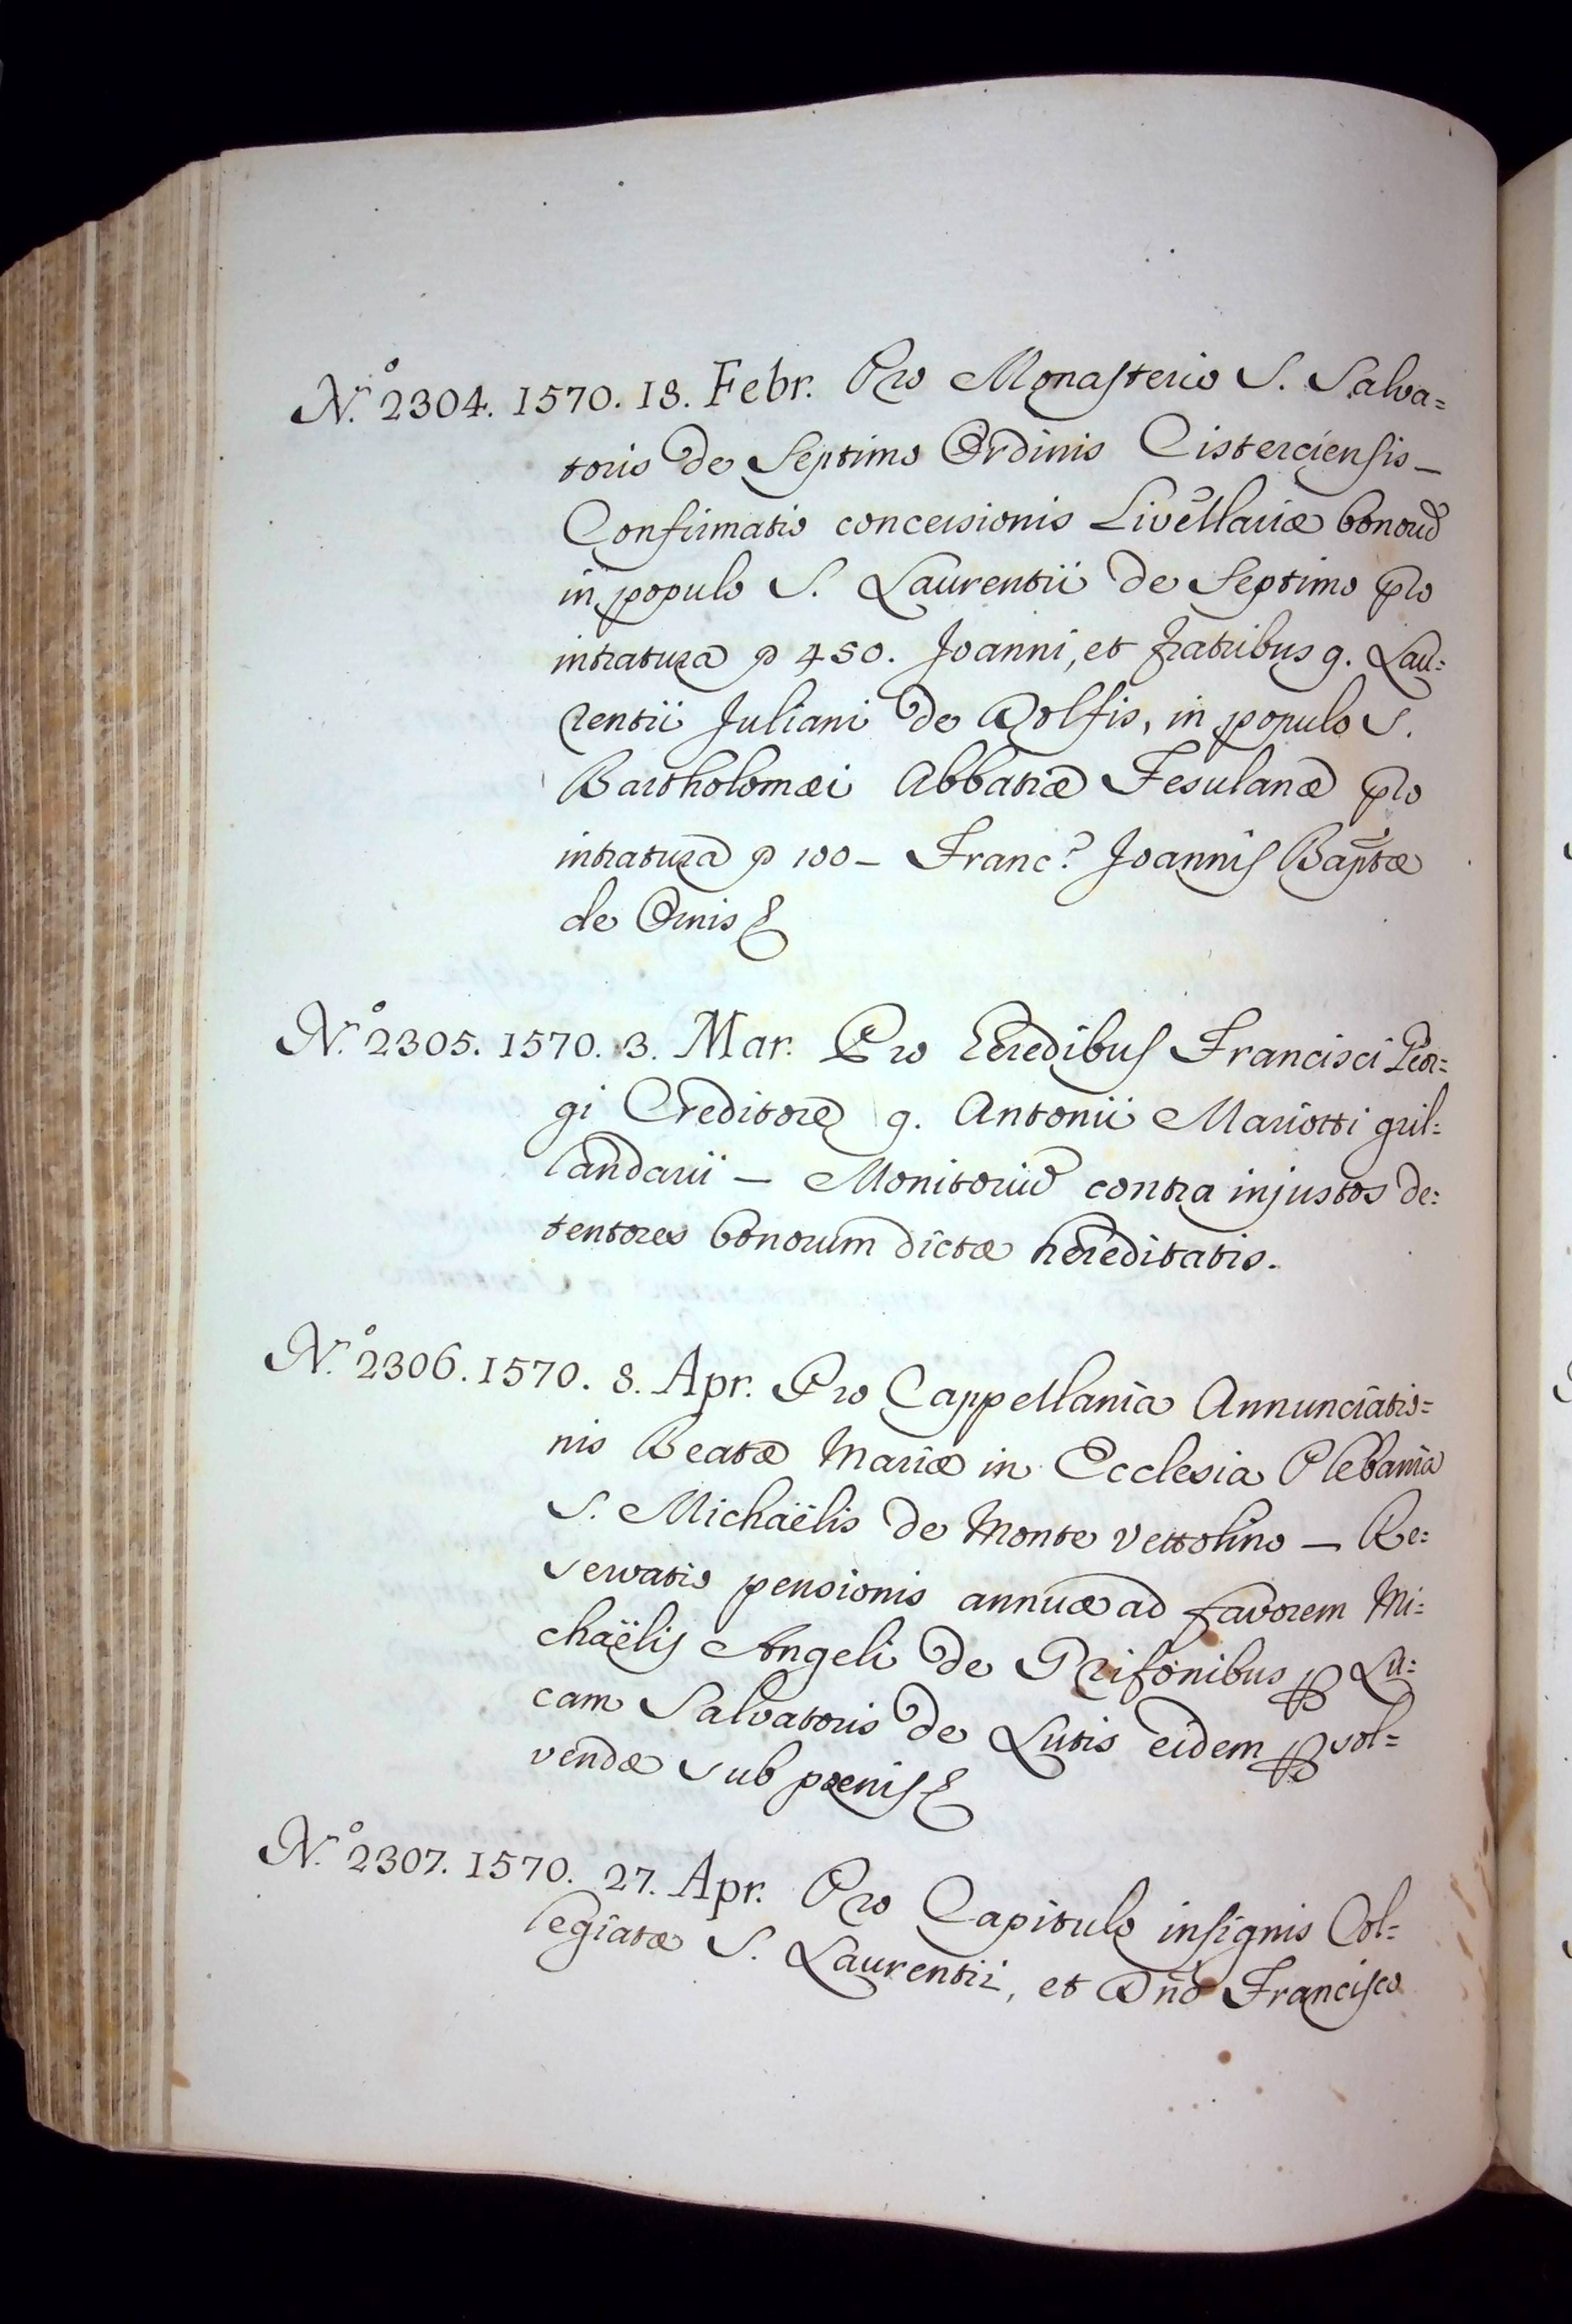 N.º 2304. 1570. 18. Febr. Pro Monasterio S. Salva=
toris de Septimo Ordinis Cisterciensis –
Confirmatio concessionis Livellariæ bonorũ
in populo S. Laurentii de Septimo pro
intratura ⅌ 450. Joanni, et fratribus q. Lau=
rentii Juliani de Dolfis, in populo S.
Bartholomæi Abbatiæ Fesulanæ pro
intratura ⅌ 100 – Franc.º Joannis Baptæ
de Omis &
N.º 2305. 1570. 3. Mar. Pro Heredibus Francisci
gi Creditore q. Antonii Mariotti gril=
landarii – Monitoriũ contra injustos de=
tentores bonorum dictæ hereditatis.
N.º 2306. 1570. 8. Apr. Pro Cappellania Annunciatio=
nis Beatæ Mariæ in Ecclesia Plebania
S. Michaëlis de Monte Vettolino – Re=
servatio pensionis annuæ ad favorem Mi=
chaëlis Angeli de Prisonibus ⅌ Lu=
cam Salvatoris de Lutis eidem ⅌sol=
vendæ sub pœnis &
N.º 2307. 1570. 27. Apr. Pro Capitulo insignis Col=
legiatæ S. Laurentii, et Dño Francisco